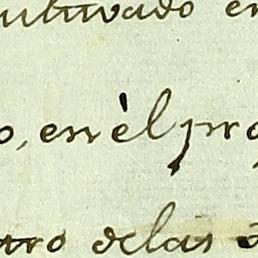 ultivado en
o, en èl pro
tro de las